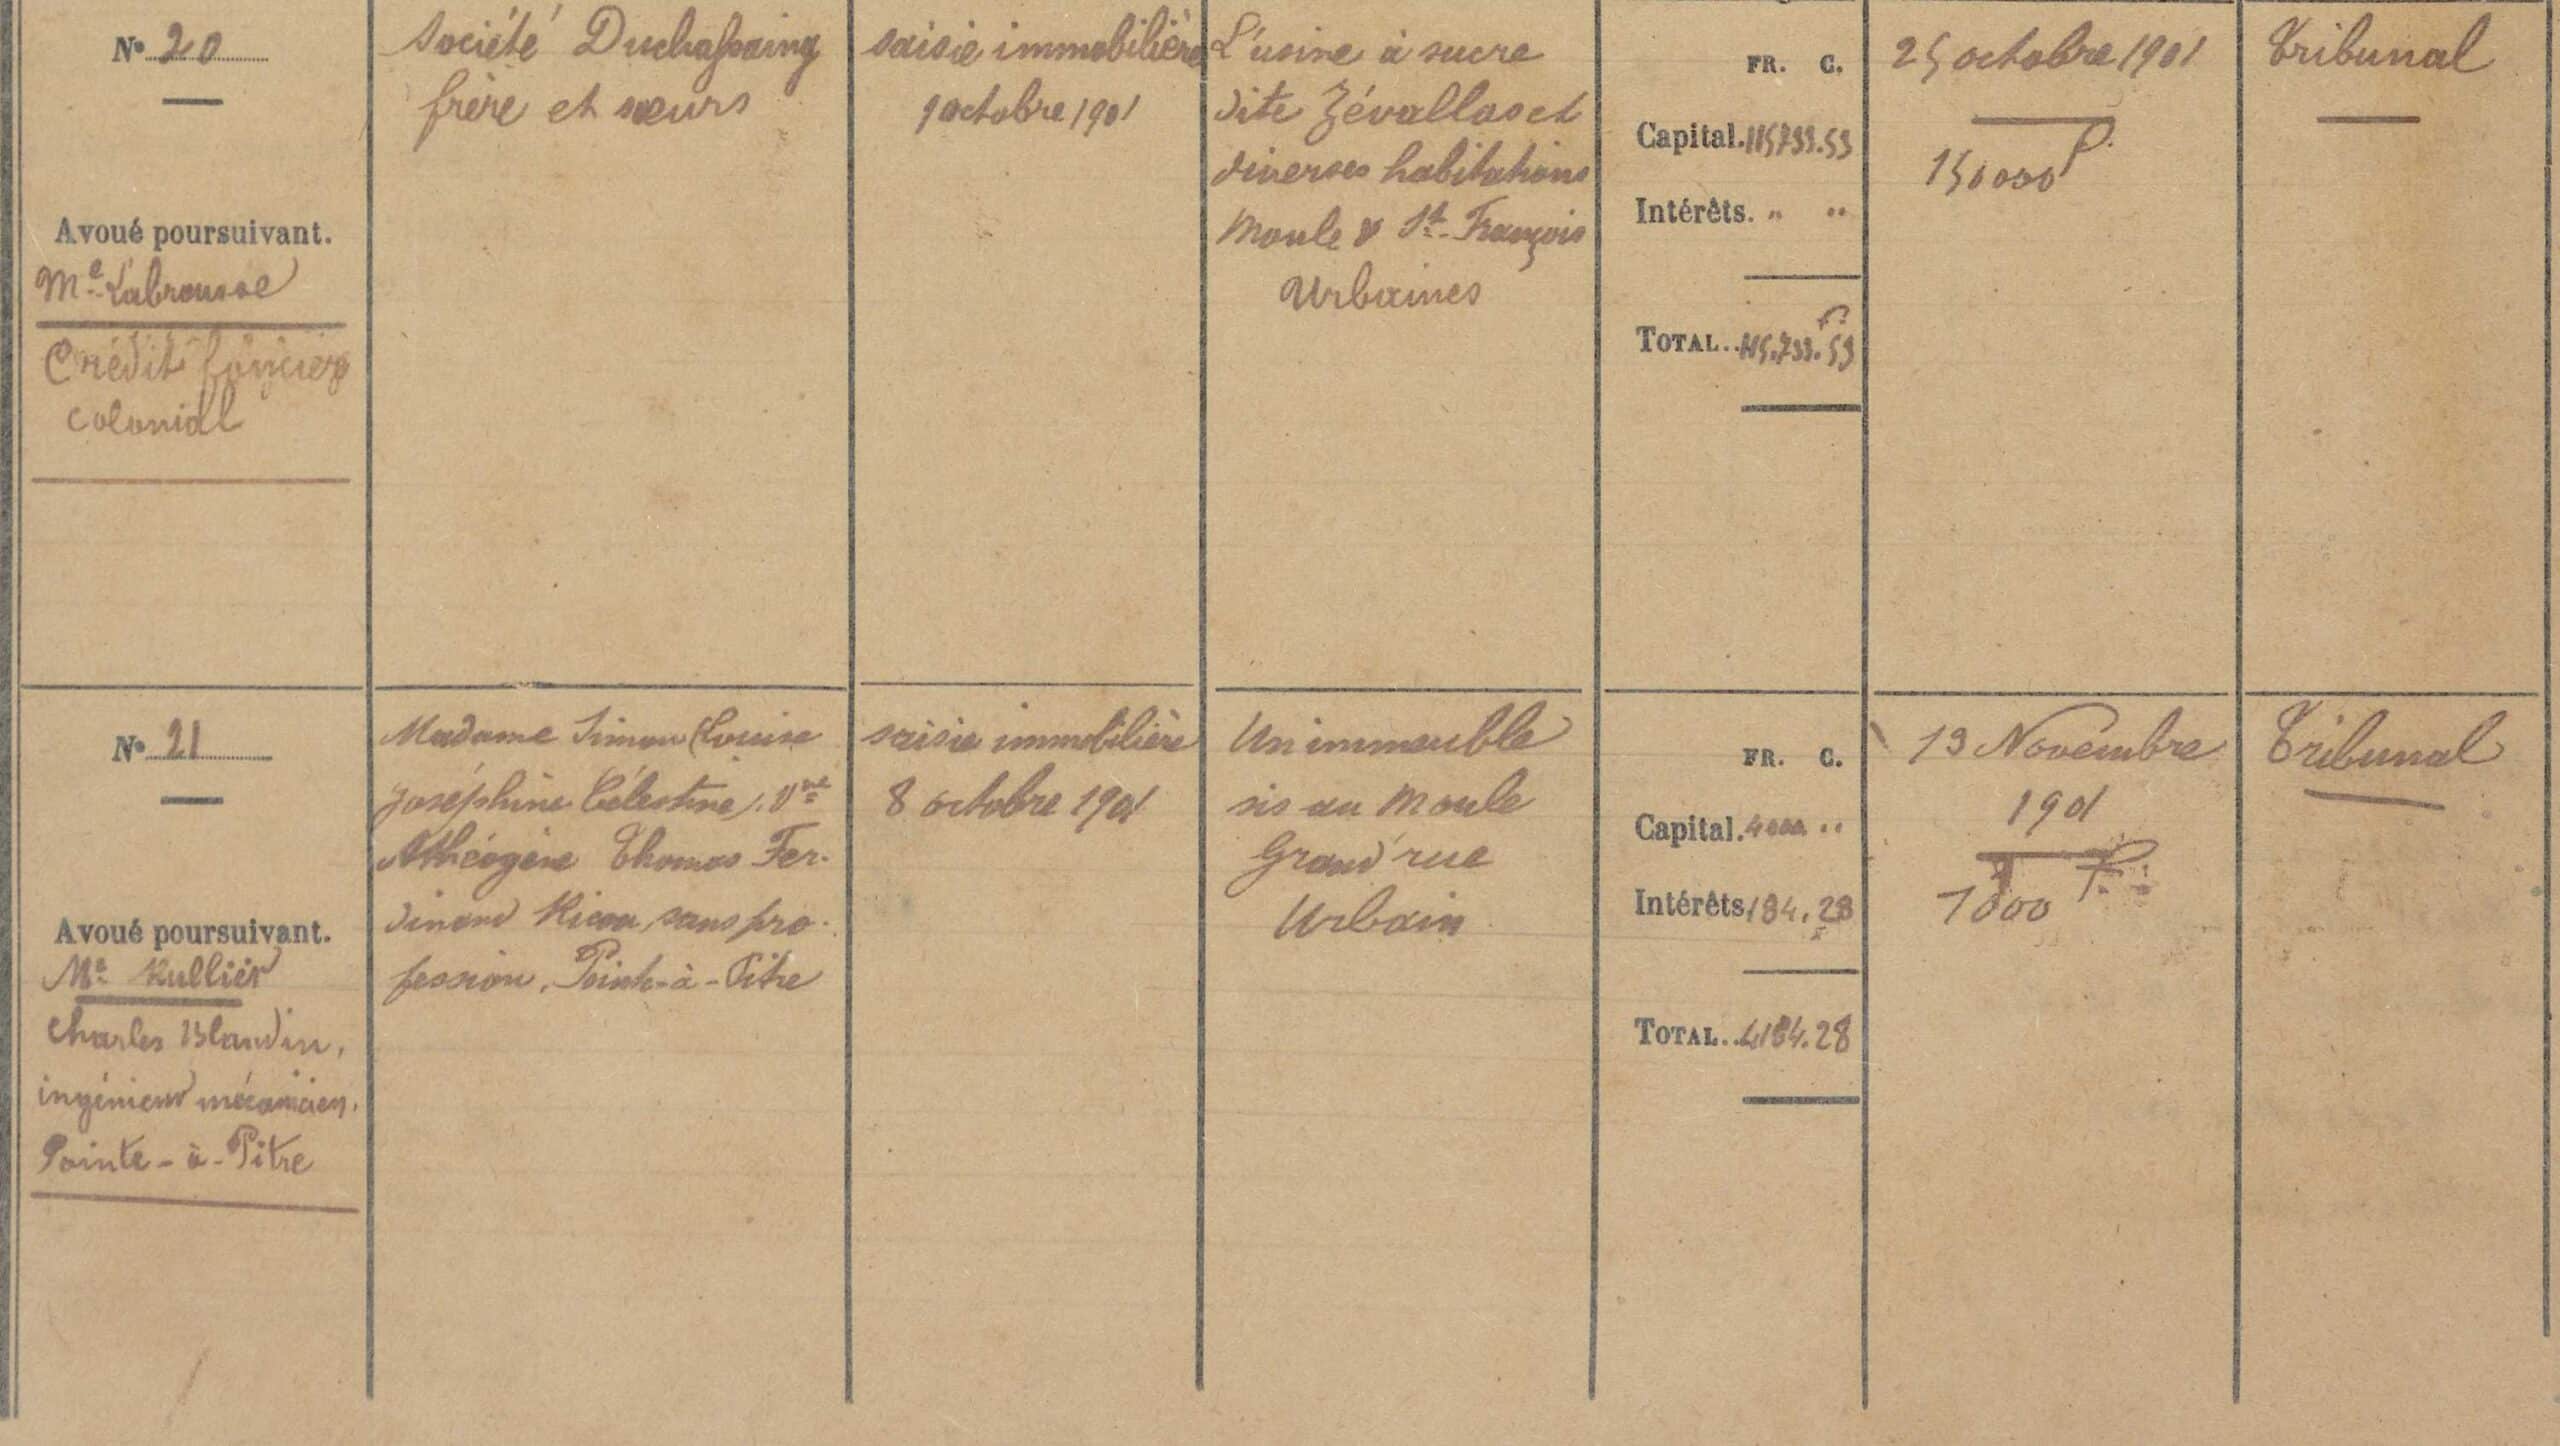 N° 20
Avoué poursuivant.
Me Labrousse
Crédit foncier
colonial
Société Duchassaing
frère et sœurs
saisie immobilière
9 octobre 1901
L'usine à sucre
dite Zévallos et
diverses habitations
Moule & St. François
Urbaines
FR. C.
Capital. 115733.53
Intérêts. " "
TOTAL.. 115.733.53
25 octobre 1901
150000 f.
Tribunal
N° 21
Avoué poursuivant.
Me Rullier
Charles Blandin,
ingénieur mécanicien,
Pointe-à-Pitre
Madame Simon (Louise
Joséphine Célestine), Vve
Athéogène Thomas Fer-
dinand Ricou, sans pro-
fession, Pointe-à-Pitre
saisie immobilière
8 octobre 1901
Un immeuble
sis au Moule
Grand'rue
Urbain
FR. C.
Capital. 4000 "
Intérêts 184.28
TOTAL.. 4184.28
19 Novembre
1901
1000 f.
Tribunal